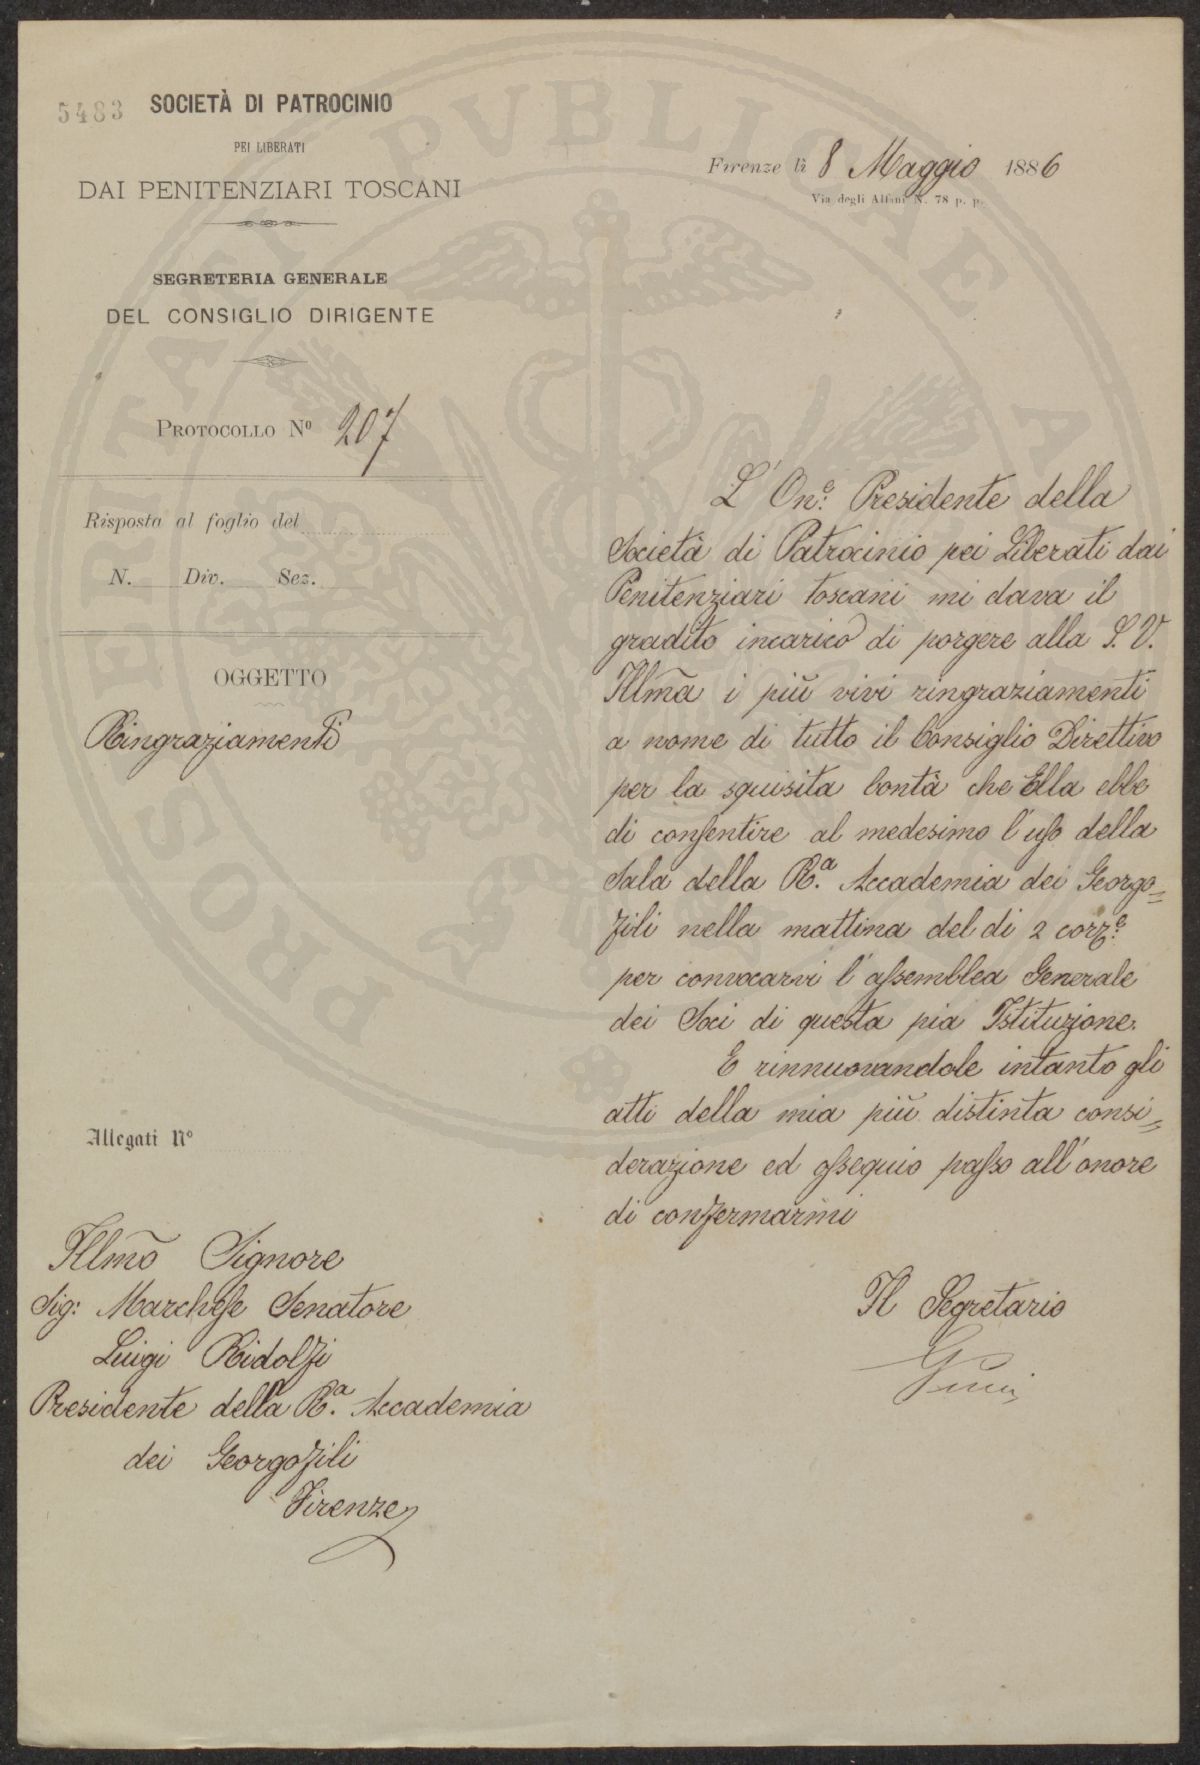 5483
SOCIETÀ DI PATROCINIO
PEI LIBERATI
DAI PENITENZIARI TOSCANI
SEGRETERIA GENERALE
DEL CONSIGLIO DIRIGENTE
PROTOCOLLO Nº 207
Risposta al foglio del
N. Div. Sez.
OGGETTO
Ringraziamenti
Allegati Nº
Illmo Signore
Sig: Marchese Senatore
Luigi Ridolfi
Presidente della R.a Accademia
dei Georgofili
Firenze
Firenze lì 8 Maggio 1886
Via degli Alfani N. 78 p. p.
L'On.e Presidente della
Società di Patrocinio pei Liberati dai
Penitenziari toscani mi dava il
gradito incarico di porgere alla S. V.
Illma i più vivi ringraziamenti
a nome di tutto il Consiglio Direttivo
per la squisita bontà che Ella ebbe
di consentire al medesimo l'uso della
Sala della R.a Accademia dei Georgo=
fili nella mattina del di 2 corr.e
per convocarvi l'assemblea Generale
dei Soci di questa pia Istituzione.
E rinnuovandole intanto gli
atti della mia più distinta consi=
derazione ed ossequio passo all'onore
di confermarmi
Il Segretario
PROSPERITATI PVBLICAE AVGENDAE